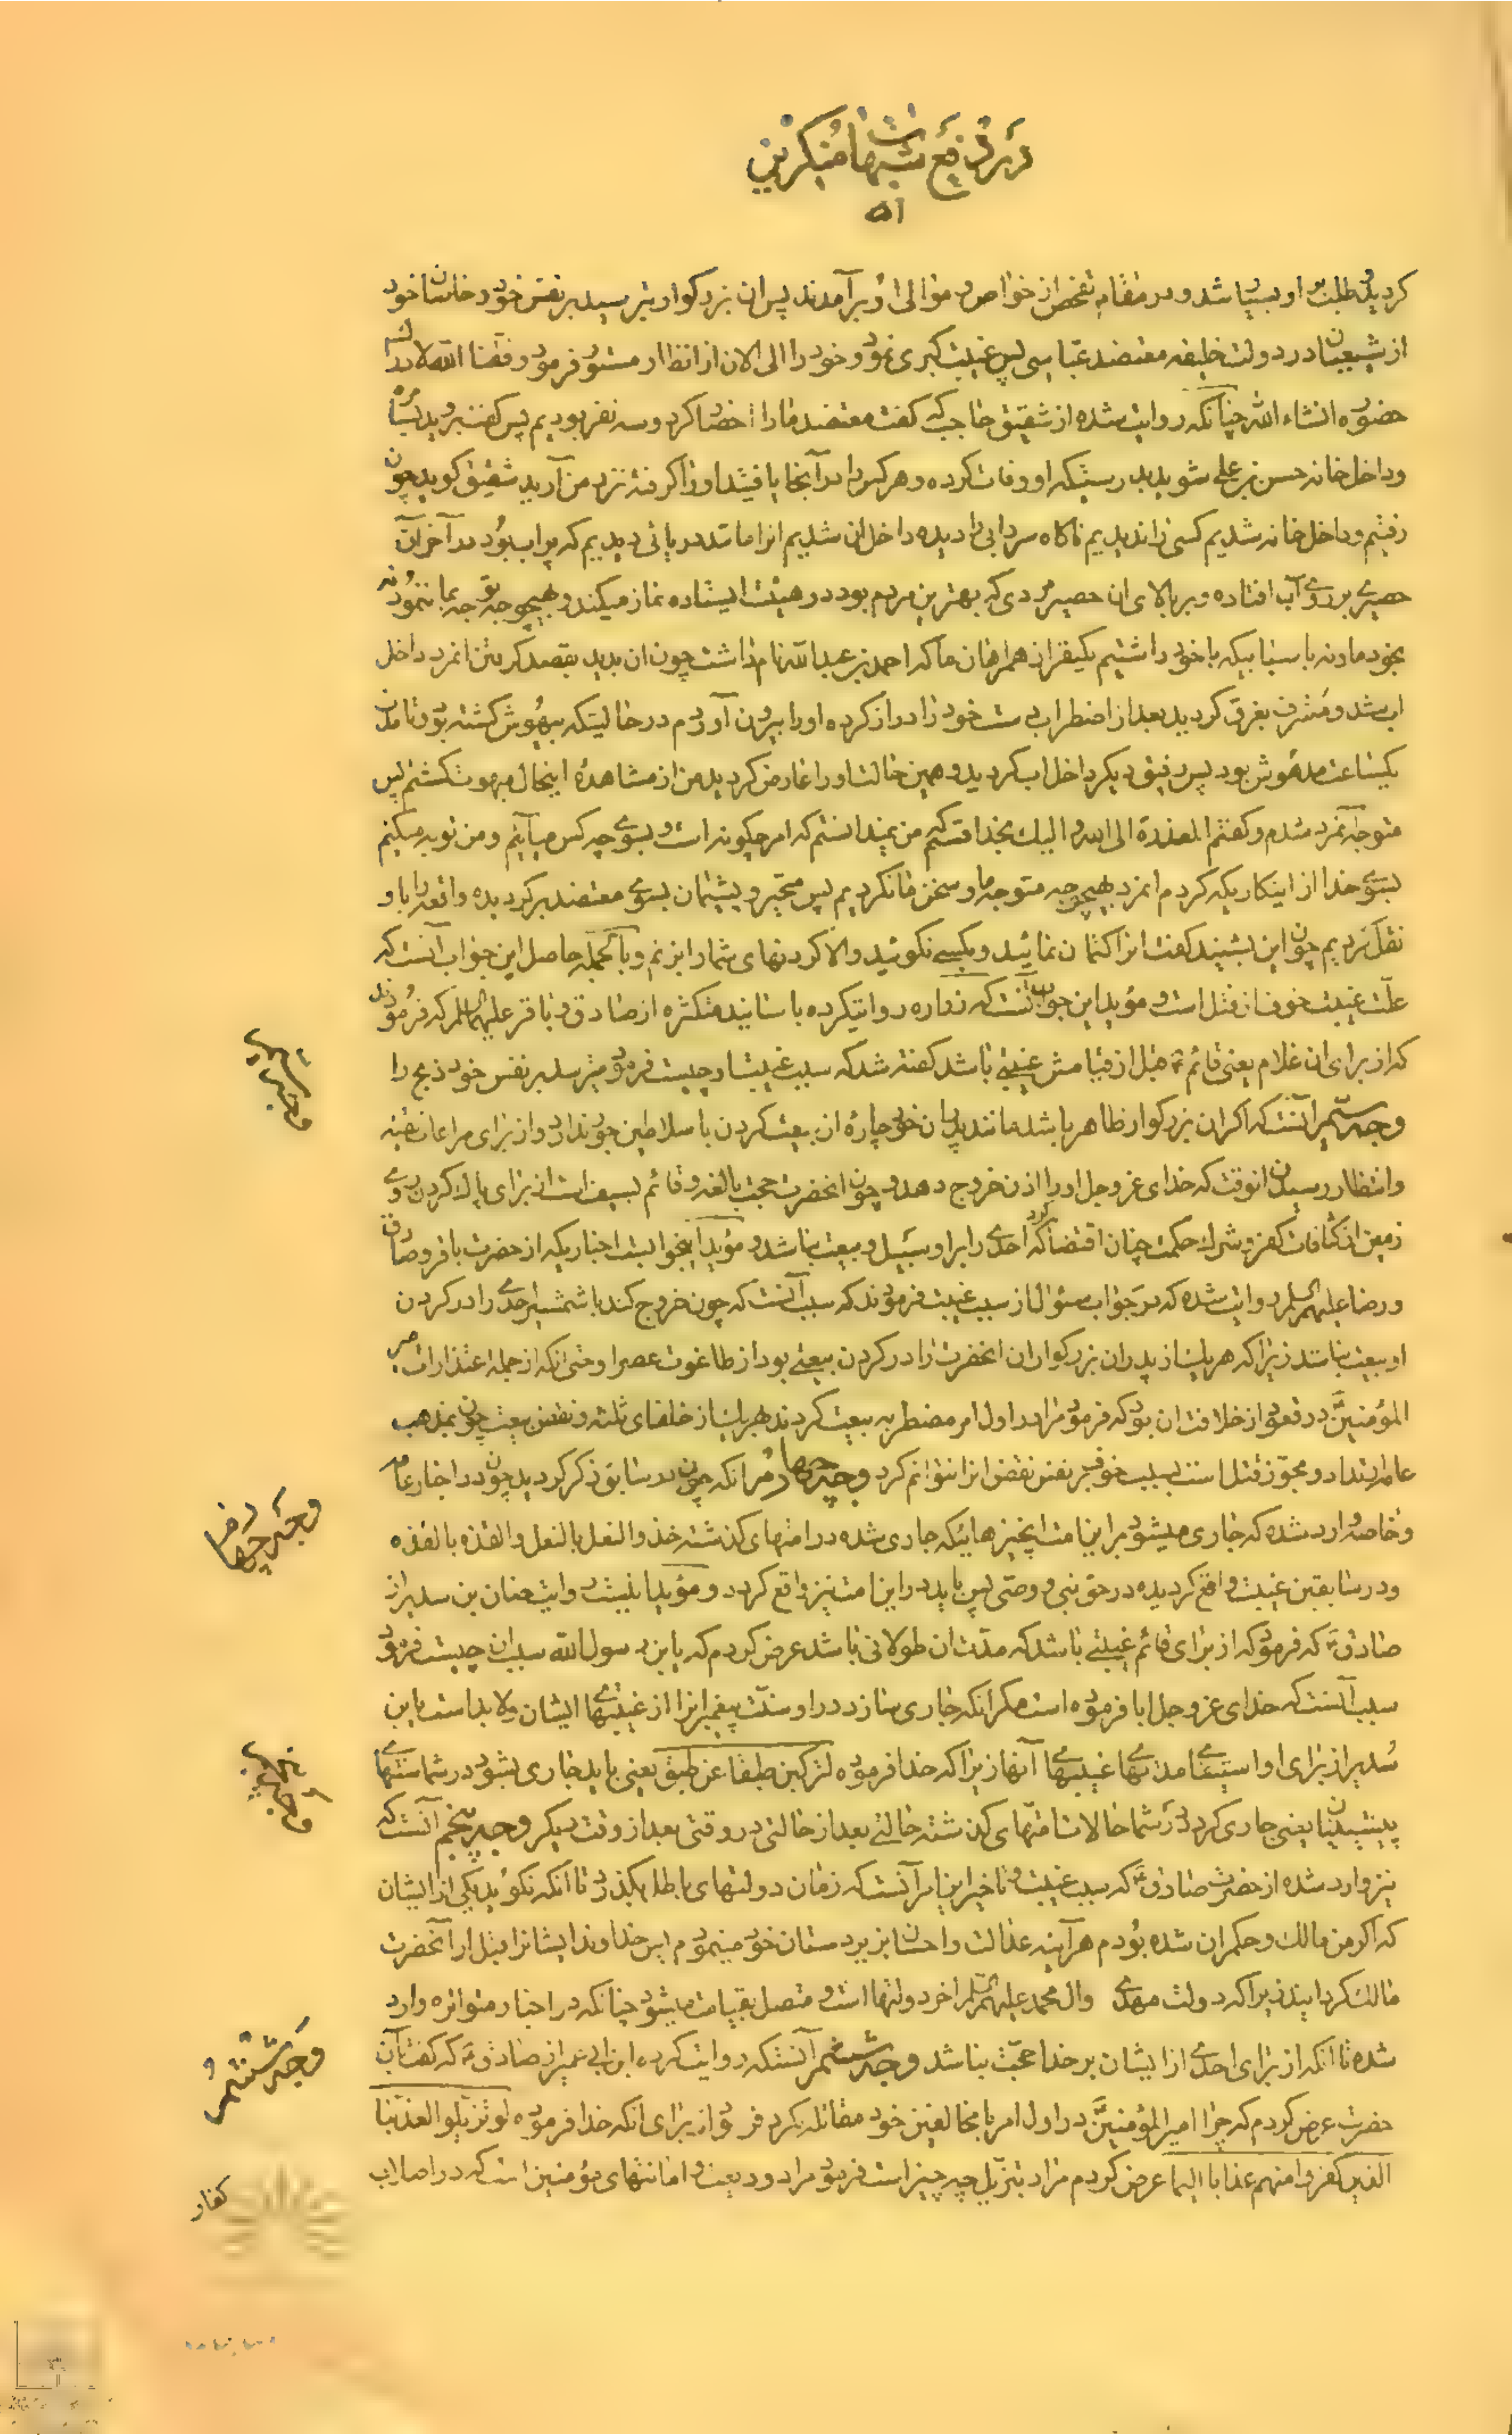 در رفع شبهات منکرین
۵۱
کردید و طلب او بسیار شد و در مقام تفحص از خواص و موالی او برآمدند پس آن بزرگوار بترسید بر نفس خود و خاسان خود
از شیعیان در دولت خلیفه معتضد عباسی پس غیبت کبری نمود و خود را الی الان از انظار مستور فرمود وفقنا الله لادراك
حضوره انشاء الله چنانکه روایت شده از شقیق حاجب که گفت معتضد ما را احضار کرد و سه نفر بودیم پس گفت بروید بسامره
و داخل خانه حسن بن علی شوید بدرستیکه او وفات کرده و هر کس را در آنجا یافتید او را گرفته نزد من آرید شقیق گوید چون
رفتیم و داخل خانه شدیم کسی را ندیدیم ناگاه سردابی را دیده داخل ان شدیم انرا مانند دریائی دیدیم که پر اب بود در آخر آن
حصیری بر روی آب افتاده و بر بالای ان حصیر مردی که بهترین مردم بود در هیئت ایستاده نماز میکند و بهیچوجه توجه بما ننمود نه
بخود ما و نه باسبابیکه با خود داشتیم یکنفر از همراهان ما که احمد بن عبدالله نام داشت چون ان بدید بقصد گرفتن انمرد داخل
اب شد و مشرف بغرق گردید بعد از اضطراب دست خود را دراز کرده او را بیرون آوردم در حالتیکه بیهوش گشته بود و تا مدت
یکساعت مدهوش بود پس رفیق دیگر داخل اب گردید و همین حالت او را عارض گردید من از مشاهدهٔ اینحال مبهوت گشتم پس
متوجه آنمرد شدم و گفتم المعذرة الی الله و الیك بخدا قسم که من نمیدانستم که امر چگونه است و بسوی چه کس میآیم و من توبه میکنم
بسوی خدا از اینکاریکه کردم انمرد بهیچوجه متوجه ما و سخن ما نگردید پس متحیر و پشیمان بسوی معتضد برگردیده واقعه را باو
نقل کردیم چون این بشنید گفت انرا کتمان نمائید و بکسی نگوئید والا گردنهای شما را بزنم و بالجمله حاصل این جواب آنست که
علت غیبت خوف از قتل است و مؤید این جواب آنست که زراره روایت کرده باسانید متکثره از صادق و باقر علیهما السلم که فرمودند
که از برای ان غلام یعنی قائم ع قبل از قیامش غیبتی باشد گفته شد که سبب غیبت او چیست فرمود میترسد بر نفس خود ذبح را
وجه سیم آنست که اگر ان بزرگوار ظاهر باشد مانند پدران خود چارهٔ از بیعت کردن با سلاطین جور ندارد از برای مراعات تقیه
و انتظار رسیدن انوقت که خدای عز و جل او را اذن خروج دهد و چون انحضرت حجت بالغه و قائم بسیف است از برای پاك کردن روی
زمین از کثافات کفر و شرك حکمت چنان اقتضا کرد که احدی را بر او سبیل و بیعت نباشد و مؤید اینجوابست اخباریکه از حضرت باقر و صادق
و رضا علیهم السلم روایت شده که در جواب سئوال از سبب غیبت فرمودند که سبب آنست که چون خروج کند با شمشیر احدی را در گردن
او بیعت نباشد زیرا که هر یك از پدران بزرگواران انحضرت را در گردن بیعتی بود از طاغوت عصر او حتی انکه از جمله اعتذارات امیر
المؤمنین در قعود از خلافت ان بود که فرمود مرا در اول امر مضطر به بیعت کردند بهر یك از خلفای ثلثه و نقض بیعت چون بمذهب
عامه ارتداد و مجوز قتل است بسبب خوف بر نفس نقض انرا نتوانم کرد وجه چهارم انکه چون در سابق ذکر گردید چون در اخبار عامه
و خاصه وارد شده که جاری میشود بر این امت انچیزهائیکه جاری شده در امتهای گذشته حذو النعل بالنعل و القذة بالقذه
و در سابقین غیبت واقع گردیده در حق نبی و وصی پس باید در این امت نیز واقع گردد و مؤید اینست روایت حنان بن سدیر از
صادق ع که فرمود که از برای قائم غیبتی باشد که مدت ان طولانی باشد عرض کردم که یابن رسول الله سبب ان چیست فرمود
سبب آنست که خدای عز و جل ابا فرموده است مگر انکه جاری سازد در او سنت پیغمبرانرا از غیبتهای ایشان و لابد است یابن
سدیر از برای او استیفای مدتهای غیبتهای آنها زیرا که خدا فرموده لترکبن طبقا عن طبق یعنی باید جاری بشود در شما سنتهای
پیشینیان یعنی جاری گردد در شما حالات امتهای گذشته حالتی بعد از حالتی در وقتی بعد از وقت دیگر وجه پنجم آنست که
نیز وارد شده از حضرت صادق ع که سبب غیبت و تاخیر این امر آنست که زمان دولتهای باطله بگذرد تا انکه نگوید یکی از ایشان
که اگر من مالك و حکمران شده بودم هر آینه عدالت و احسان بزیردستان خود مینمودم پس خداوند ایشانرا قبل از آنحضرت
مالك گردانید زیرا که دولت مهدی وال محمد علیهم السلم اخر دولتها است و متصل بقیامت میشود چنانکه در اخبار متواتره وارد
شده تا انکه از برای احدی از ایشان بر خدا حجت نباشد وجه ششم آنستکه روایت کرده ابن ابی عمیر از صادق ع که گفت بآن
حضرت عرض کردم که چرا امیر المؤمنین در اول امر با مخالفین خود مقاتله نکرد فرمود از برای انکه خدا فرموده لو تزیلوا لعذبنا
الذین کفروا منهم عذابا الیما عرض کردم مراد بتزیل چه چیز است فرمود مراد ودیعت و امانتهای مؤمنین است که در اصلاب
وجه سیم
وجه چهارم
وجه پنجم
وجه ششم
کفار